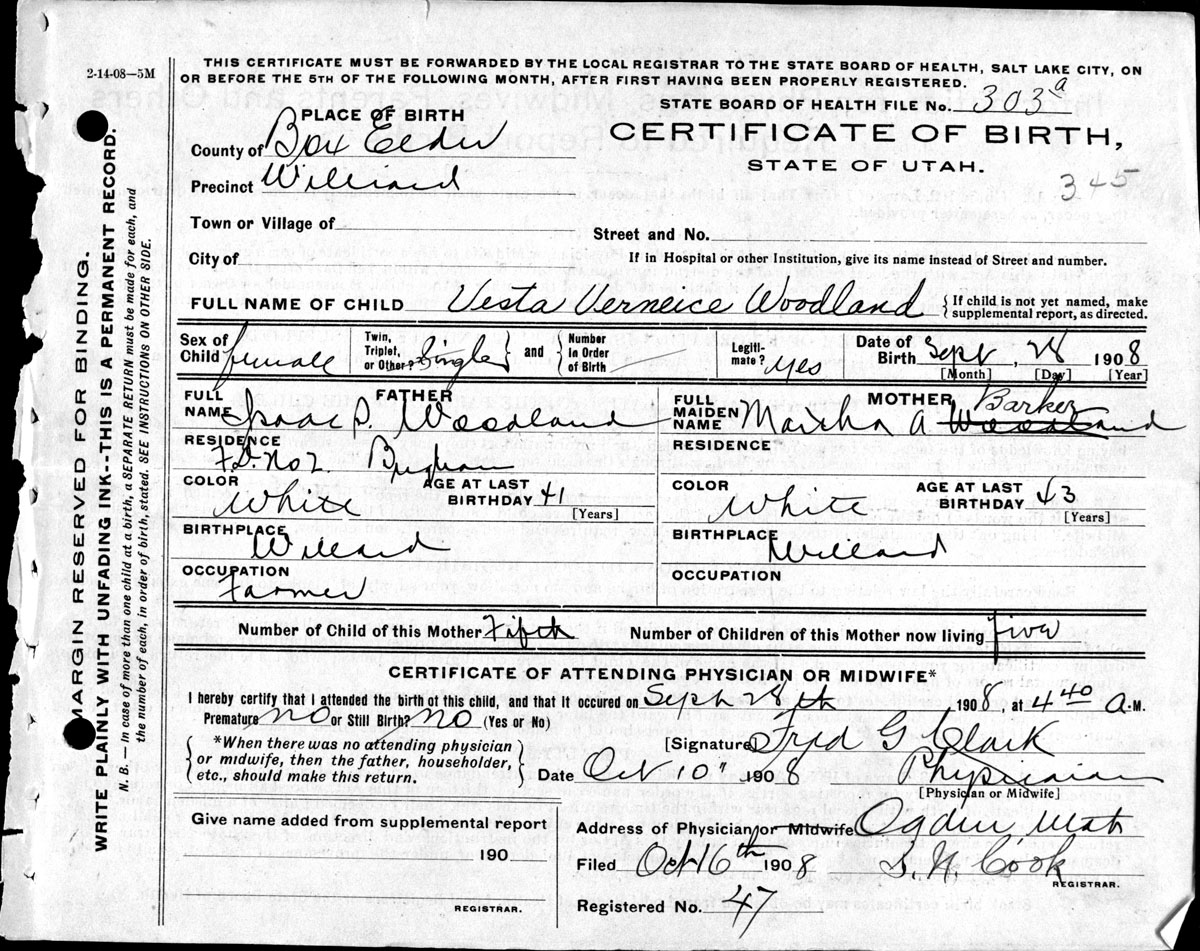 2-14-08—5M
THIS CERTIFICATE MUST BE FORWARDED BY THE LOCAL REGISTRAR TO THE STATE BOARD OF HEALTH, SALT LAKE CITY, ON
OR BEFORE THE 5TH OF THE FOLLOWING MONTH, AFTER FIRST HAVING BEEN PROPERLY REGISTERED.
STATE BOARD OF HEALTH FILE No. 303a
PLACE OF BIRTH
CERTIFICATE OF BIRTH,
County of Box Elder
STATE OF UTAH.
Precinct Willard
345
Town or Village of
Street and No.
City of
If in Hospital or other Institution, give its name instead of Street and number.
FULL NAME OF CHILD Vesta Verneice Woodland {If child is not yet named, make supplemental report, as directed.
Sex of Child female
Twin, Triplet, or Other? Single } and { Number in Order of Birth
Legiti-mate? yes
Date of Birth Sept, 28 1908
[Month] [Day] [Year]
FATHER
FULL NAME Isaac D. Woodland
RESIDENCE F.D. No 2. Brigham
COLOR White
AGE AT LAST BIRTHDAY 41 [Years]
BIRTHPLACE Willard
OCCUPATION Farmer
MOTHER
FULL MAIDEN NAME Martha A. Barker Woodland
RESIDENCE
COLOR White
AGE AT LAST BIRTHDAY 43 [Years]
BIRTHPLACE Willard
OCCUPATION
Number of Child of this Mother Fifth
Number of Children of this Mother now living five
CERTIFICATE OF ATTENDING PHYSICIAN OR MIDWIFE*
I hereby certify that I attended the birth of this child, and that it occured on Sept 28th, 1908, at 4 40 A.M.
Premature no or Still Birth? no (Yes or No)
{*When there was no attending physician
or midwife, then the father, householder,
etc., should make this return.}
[Signature] Fred G Clark
Date Oct 10" 1908 Physician
[Physician or Midwife]
Give name added from supplemental report
190
REGISTRAR.
Address of Physician or Midwife Ogden Utah
Filed Oct 16th 1908 S. N. Cook
REGISTRAR.
Registered No. 47
MARGIN RESERVED FOR BINDING.
WRITE PLAINLY WITH UNFADING INK--THIS IS A PERMANENT RECORD.
N. B.—In case of more than one child at a birth, a SEPARATE RETURN must be made for each, and
the number of each, in order of birth, stated. SEE INSTRUCTIONS ON OTHER SIDE.